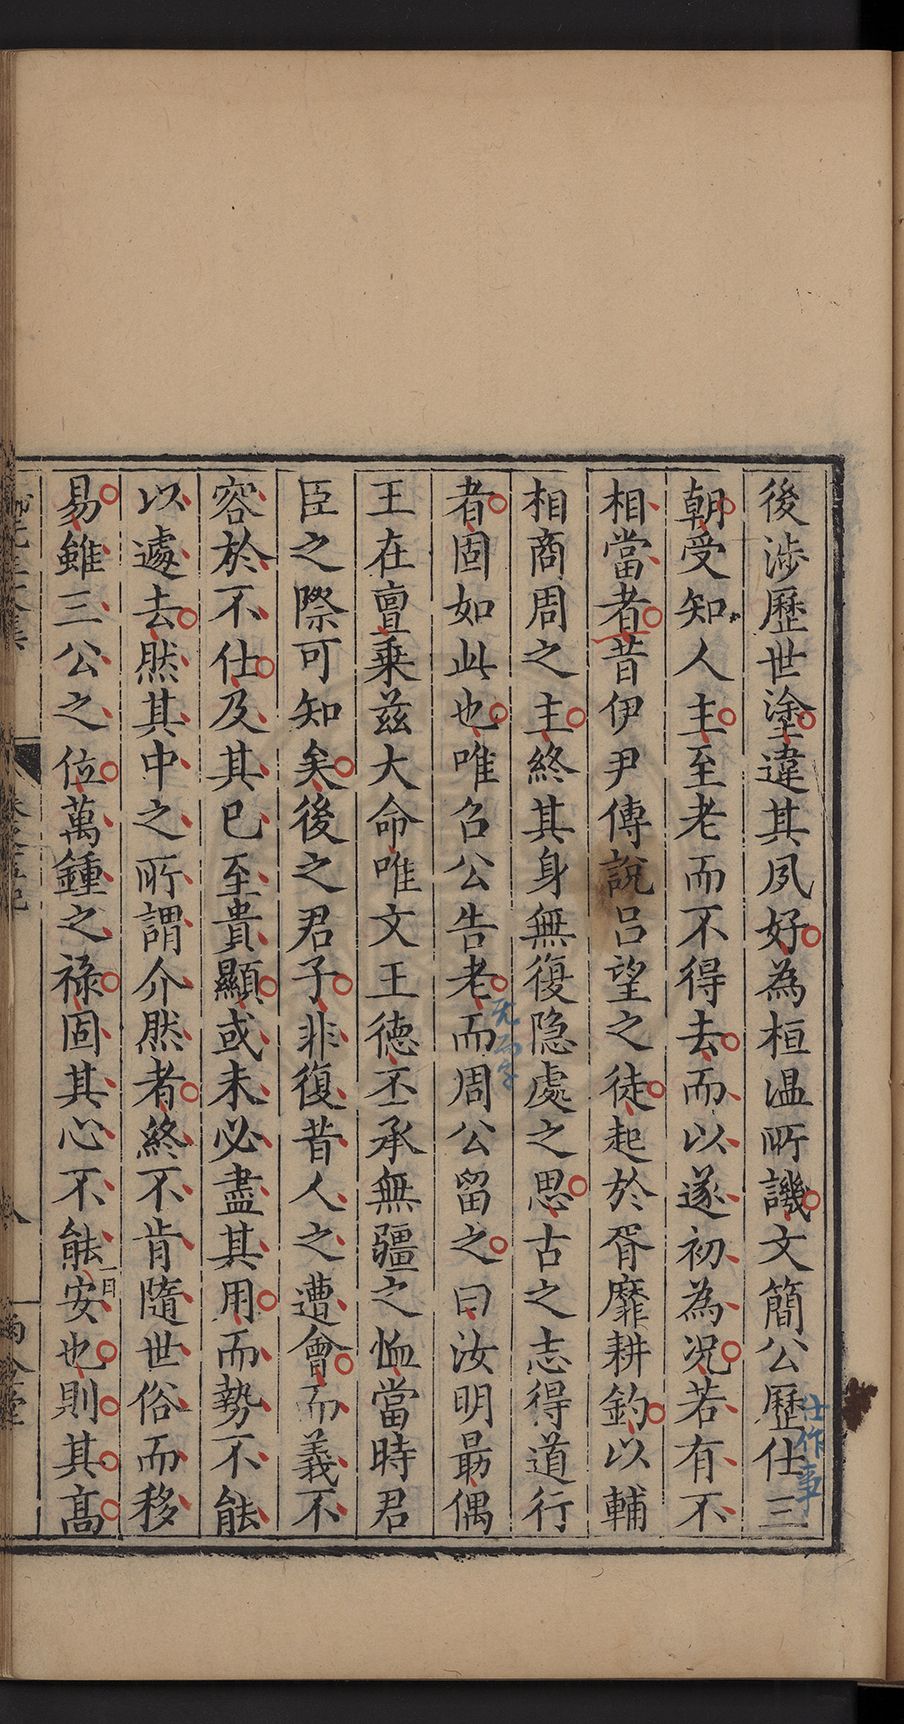 後涉歷世塗違其夙好為桓温所譏文簡公歷仕三
仕作事
朝受知人主至老而不得去而以遂初為况若有不
相當者昔伊尹傅說呂望之徒起於胥靡耕釣以輔
相商周之主終其身無復隐處之思古之志得道行
者固如此也唯召公告老而周公留之曰汝明勗偶
无而字
王在亶乗兹大命唯文王德丕承無疆之恤當時君
臣之際可知矣後之君子非復昔人之遭會而義不
容於不仕及其已至貴顯或未必盡其用而勢不能
以遽去然其中之所謂介然者終不肯隨世俗而移
易雖三公之位萬鍾之禄固其心不能一日安也則其髙